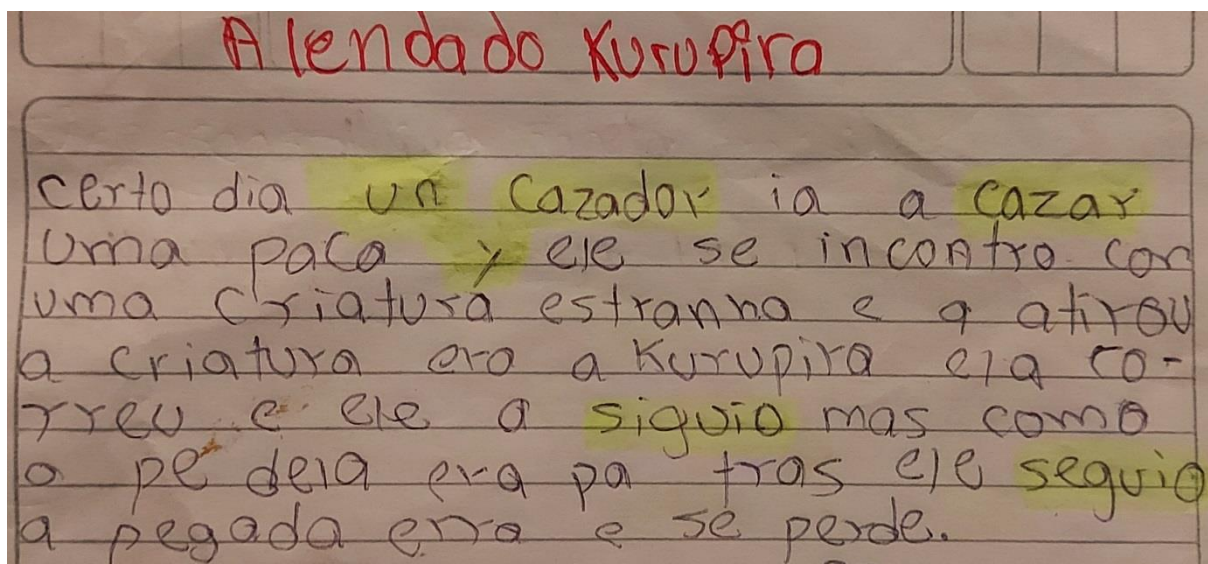 A lenda do Kurupira
certo dia un cazador ia a cazar
uma paca y ele se incontro con
uma criatura estranha e a atirou
a criatura era a Kurupira ela co-
rreu e ele a siguio mas como
o pé dela era pa tras ele seguio
a pegada erra e se perde.